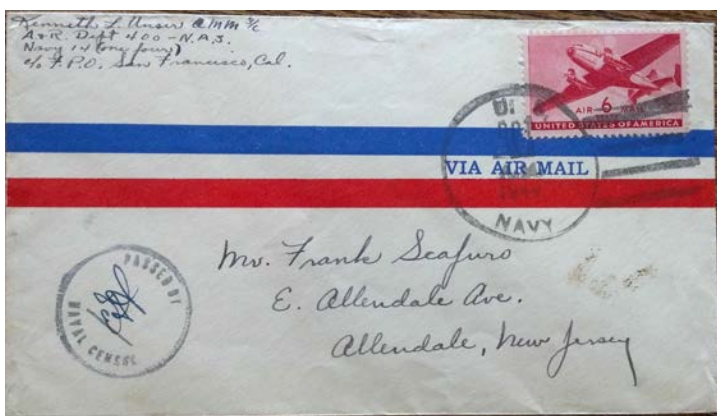 Kenneth L. Unser AMM 3/c
A & R. Dept 400 - N.A.S.
Navy 14 (one four)
c/o F.P.O. San Francisco, Cal.
AIR 6 MAIL
UNITED STATES OF AMERICA
VIA AIR MAIL
NAVY
Mr. Frank Scafuro
E. Allendale Ave.
Allendale, New Jersey
PASSED BY
NAVAL CENSOR